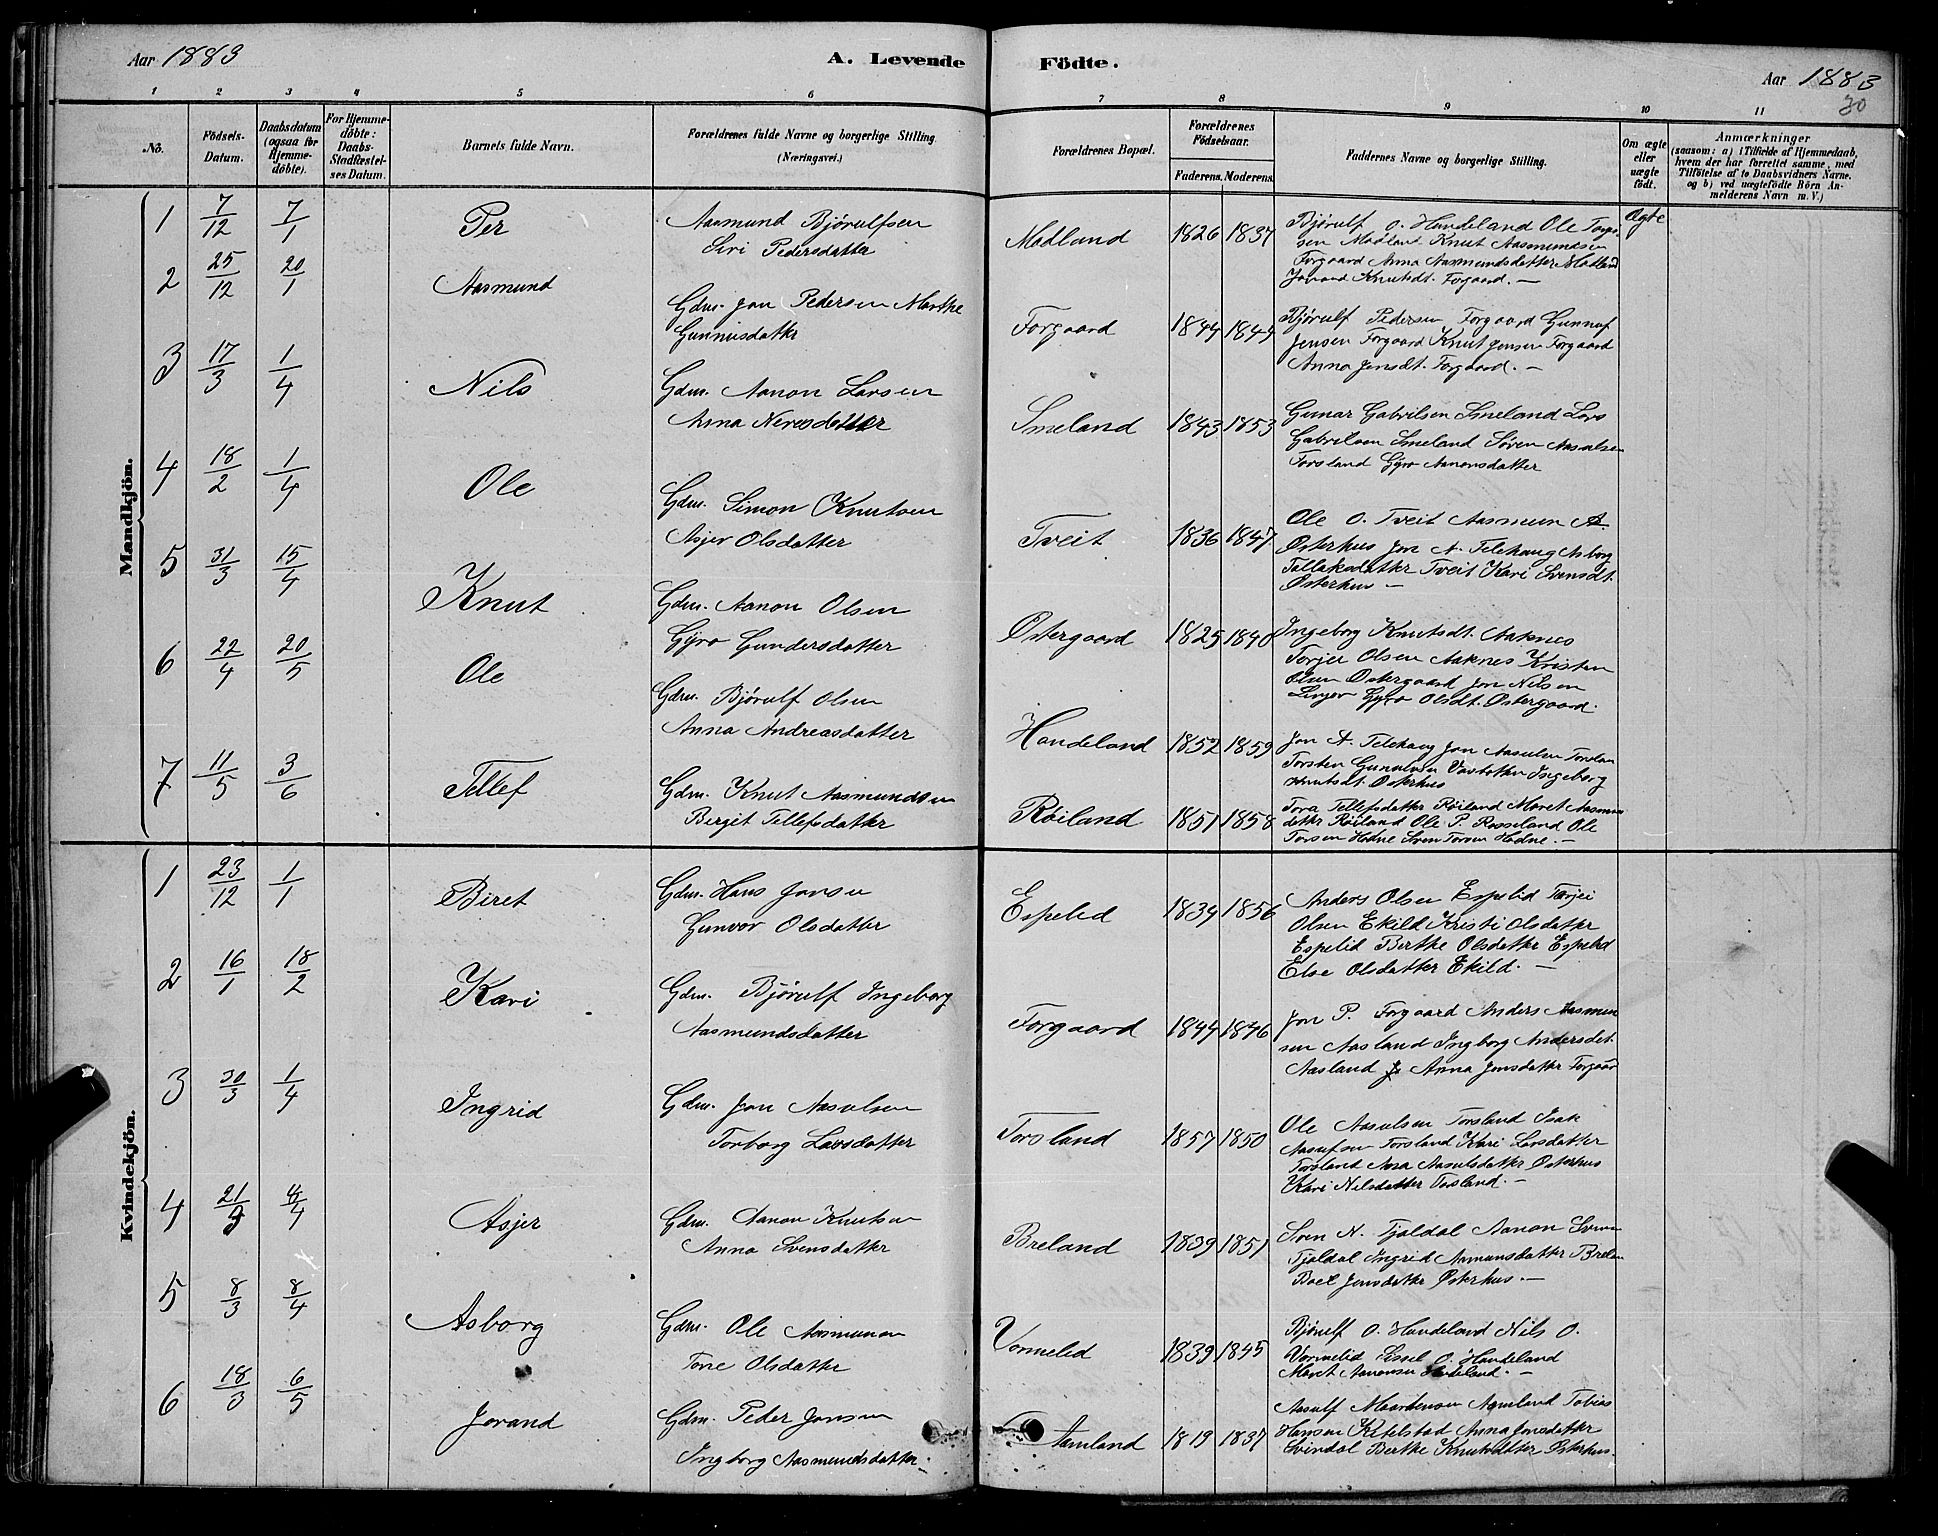 Aar 1883
A. Levende
1 2 3 4 5 6
No.
Födsels-
Datum.
Daabsdatum
(ogsaa for
Hjemme-
döbte).
For Hjemme-
döbte:
Daabs-
Stadfæstel-
ses Datum.
Barnets fulde Navn.
Forældrenes fulde Navne og borgerlige Stilling.
(Næringsvei.)
Mandkjön.
1 7/12 7/1 Per Aasmund Bjørulfsen
Siri Pedersdatter
2 25/12 20/1 Aasmund Gdm. Jon Pedersen Marthe
Gunnusdatter
3 17/3 1/4 Nils Gdm. Aanon Larsen
Anna Neresdatter
4 18/2 1/4 Ole Gdm. Simon Knutsen
Asjer Olsdatter
5 31/3 15/4 Knut Gdm. Aanon Olsen
Gyro Gundersdatter
6 22/4 20/5 Ole Gdm. Bjørulf Olsen
Anna Andreasdatter
7 11/5 3/6 Tellef Gdm. Knut Aasmundsen
Berget Tellefsdatter
Kvindekjön.
1 23/12 1/1 Biret Gdm. Hans Jonsen
Gunvor Olsdatter
2 16/1 18/2 Kari Gdm. Bjørulf Ingeborg
Aasmundsdatter
3 30/3 1/4 Ingrid Gdm. Jon Aasulsen
Torborg Larsdatter
4 Asjer Gdm. Aanon Knutsen
Anna Svensdatter
5 8/3 8/4 Asborg Gdm. Ole Aasmunsen
Tone Olsdatter
6 18/3 6/5 Jorand Gdm. Peder Jonsen
Ingborg Aasmundsdatter.
Födte.
Aar 1883
30
7 8 9 10 11
Forældrenes Bopæl.
Forældrenes
Födselsaar.
Faderens. Moderens.
Faddernes Navne og borgerlige Stilling.
Om ægte
eller
uægte
födt.
Anmærkninger
(saasom: a) i Tilfælde af Hjemmedaab,
hvem der har forrettet samme, med
Tilföielse af to Daabsvidners Navne.
og b) ved uægtefödte Börn An-
melderens Navn m. V.)
Modland 1826 1837 Bjørulf O. Handeland Ole Torje- Ægte
sen Modland Knut Aasmundsen
Forgaard Anna Aasmundsdatter Modland
Jorand Knutsdt. Forgaard. —
Forgaard 1844 1849 Bjørulf Pedersen Forgaard Gunnuf
Jensen Forgaard Knut Jensen Forgaard
Anna Jensdt. Forgaard. —
Smeland 1843 1853 Gunar Gabrilsen Smeland Lars
Gabrilsen Smeland Søren Aasulsen
Torsland Gyro Aanonsdatter
Tveit 1836 1847 Ole O. Tveit Aasmun A
Østerhus Jon A. Telehaug Asborg
Tallaksdatter Tveit Kari Svensdt.
Østerhus —
Østergaard 1825 1840 Ingeborg Knutsdt. Aaknes
Torjer Olsen Aaknes Kristen
Olsen Østergaard Jon Nilsen
Gyro Olsdt. Østergaard.
Handeland 1852 1859 Jon A. Telehaug Jon Aasulsen Torslan
Torsten Ingeborg
Knutsdt. Østerhus
Røiland 1851 1858 Tora Tellefsdatter Røiland Maret Aasmun
datter Røiland Ole P. Rosseland Ole
Torsen Hodne Sven Torsen Hodne. —
Espelid 1834 1856 Anders Olsen Espelid Terjei
Olsen Ekild Kristi Olsdatter
Espelid Berthe Olsdatter Espelid
Else Olsdatter Ekild. —
Forgaard 1844 1846 Jon P. Forgaard Anders Aasmun
sen Aasland Ingborg Andersdt.
Aasland Anna Jensdatter Forgaar
Torsland 1857 1850 Ole Aasulsen Torsland Isak
Aasulfsen Torsland Kari Larsdatter
Torsland Ana Aasulsdatter Østerhus
Kari Nilsdatter Torsland. —
Breland 1839 1851 Sven N. Fjaldal Aanon Svensen
Fjaldal Ingrid Aamunsdatter Brelan
Boel Jensdatter Østerhus. —
Vormelid 1839 1845 Bjørulf O. Handeland Nils O.
Vormelid Sissel O. Handeland
Maret Aanonsen Handeland. —
Aamland 1819 1837 Aasulf Maartensen Aamland Tobias
Hansen Ketelstad Anna Jensdatter
Svindal Berthe Knutsdatter Østerhus.